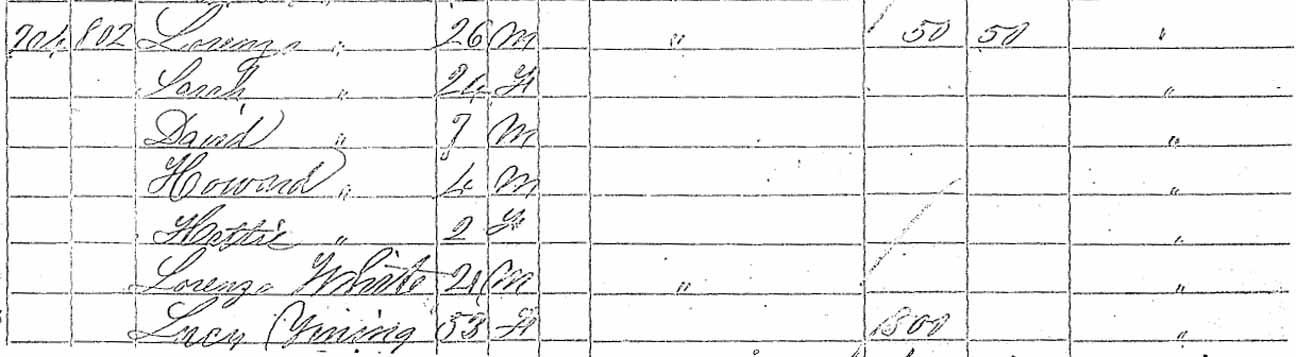 704 802 Lorenzo " 26 M " 50 50 "
Sarah " 24 F "
David " 7 M "
Howard " 4 M "
Hettie " 2 F "
Lorenzo White 21 M " "
Lucy 53 F 1800 "